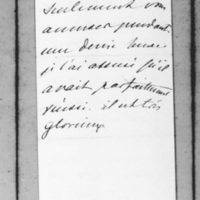 seulement vous
amuser pendant
une demi heure
je l'ai assuré qu'il
avait parfaitement
réussi. il est très
glorieux